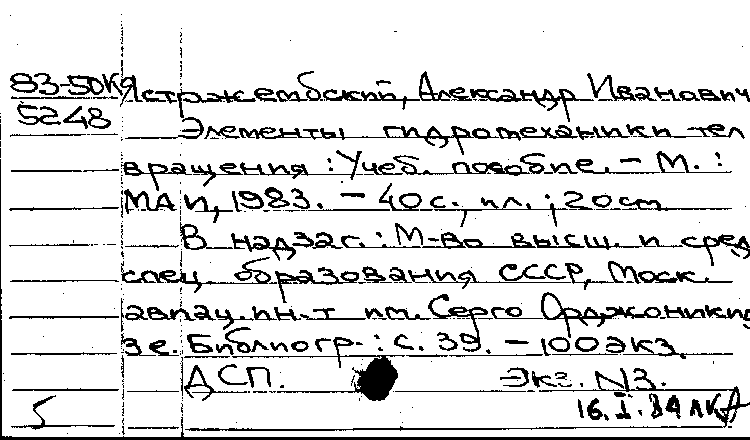 83-50К Ястржембский, Александр Иванович
5248 Элементы гидромеханики тел
вращения : Учеб. пособие. - М. :
МАИ, 1983. - 40 с., ил. ; 20 см
В надзаг. : М-во высш. и сред.
спец. образования СССР, Моск.
авиац. ин-т им. Серго Орджоникид
зе. Библиогр. : с. 39. - 100 экз.
ДСП. Экз. N3.
5 16.I.84